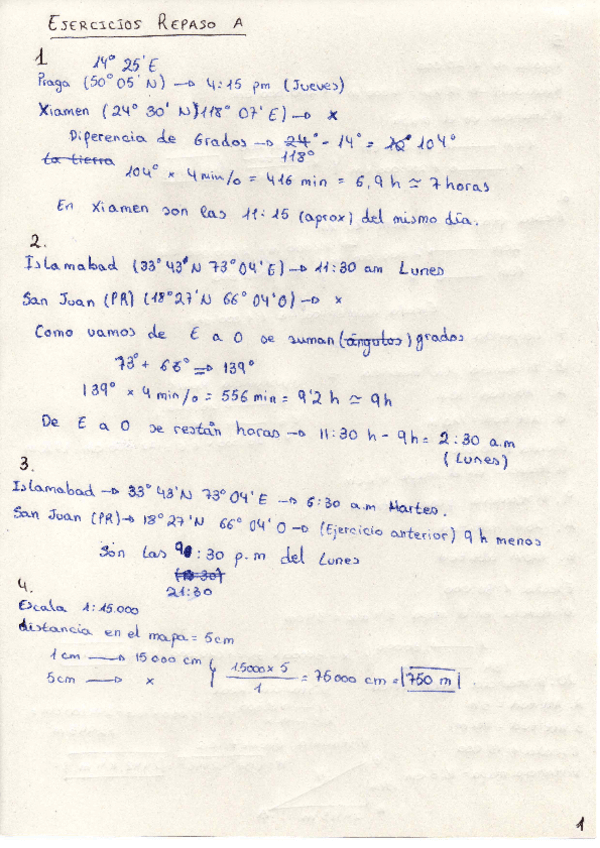 EJERCICIOS REPASO A
1
14° 25' E
Praga (50° 05' N) → 4:15 pm (Jueves)
Xiamen (24° 30' N)(118° 07' E) → x
Diferencia de Grados → 24° - 14° = 10° 104°
118°
la tierra
104° × 4 min/° = 416 min = 6,9 h ≃ 7 horas
En Xiamen son las 11:15 (aprox) del mismo día.
2.
Islamabad (33° 43' N 73° 04' E) → 11:30 am Lunes
San Juan (PR) (18° 27' N 66° 04' O) → x
Como vamos de E a O se suman (ángulos) grados
73° + 66° => 139°
139° × 4 min/° = 556 min = 9'2 h ≃ 9h
De E a O se restan horas → 11:30 h - 9h = 2:30 a.m
(Lunes)
3.
Islamabad → 33° 43' N 73° 04' E → 6:30 a.m Martes.
San Juan (PR) → 18° 27' N 66° 04' O → (Ejercicio anterior) 9 h menos
Son las 9:30 p.m del Lunes
21:30
4.
Escala 1:15.000
distancia en el mapa = 5cm
1 cm → 15000 cm
5cm → x
15000 x 5 / 1 = 75000 cm = 750 m
1